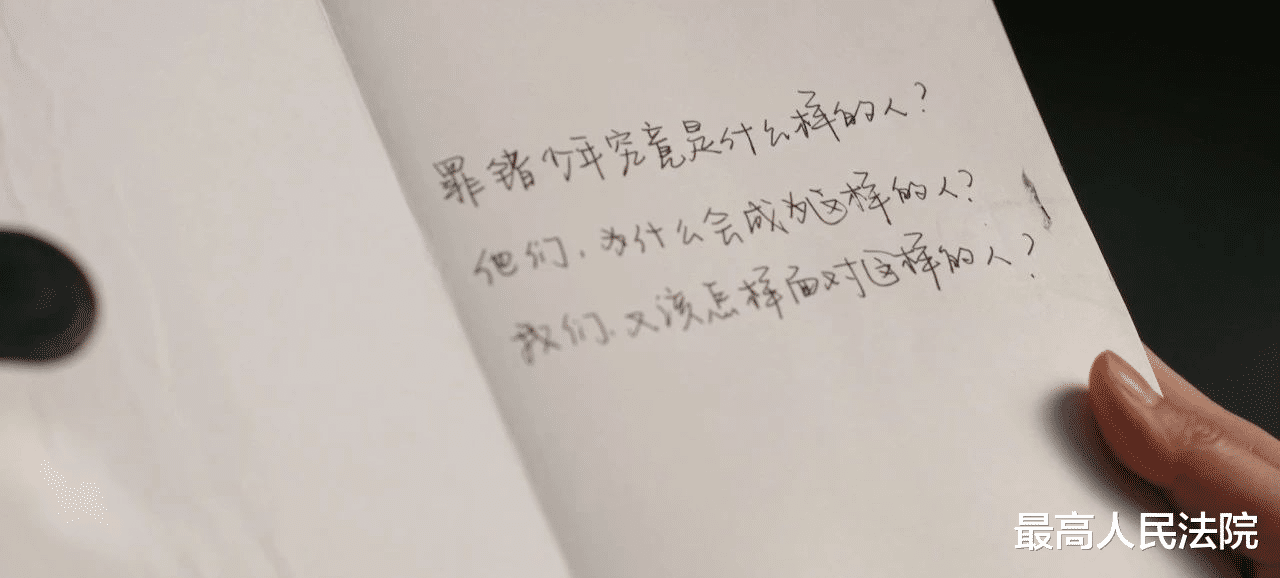 罪错少年究竟是什么样的人？
他们，为什么会成为这样的人？
我们，又该怎样面对这样的人？
最高人民法院